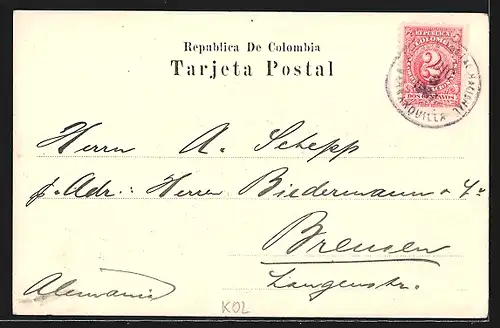 Republica De Colombia
Tarjeta Postal
REPUBLICA DE COLOMBIA
2
DOS CENTAVOS
BARRANQUILLA
Herrn A. Schepp
p. Adr.: Herren Biedermann & Co
Bremen
Langenstr.
Alemania
KOL